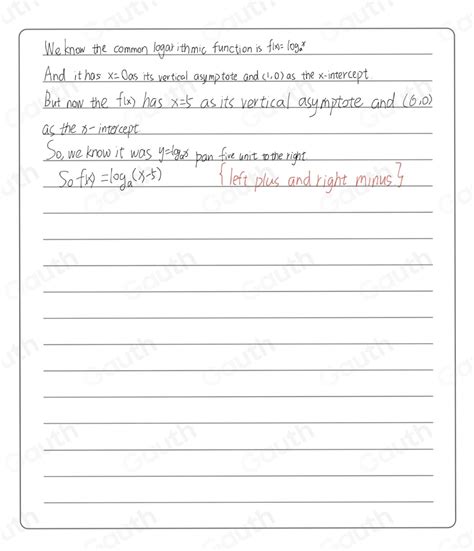 We know the common logarithmic function is f(x)=logₐx
And it has x=0 as its vertical asymptote and (1,0) as the x-intercept
But now the f(x) has x=5 as its vertical asymptote and (6,0)
as the x-intercept
So, we know it was y=logₐx pan five unit to the right
So f(x)=logₐ(x-5) {left plus and right minus}